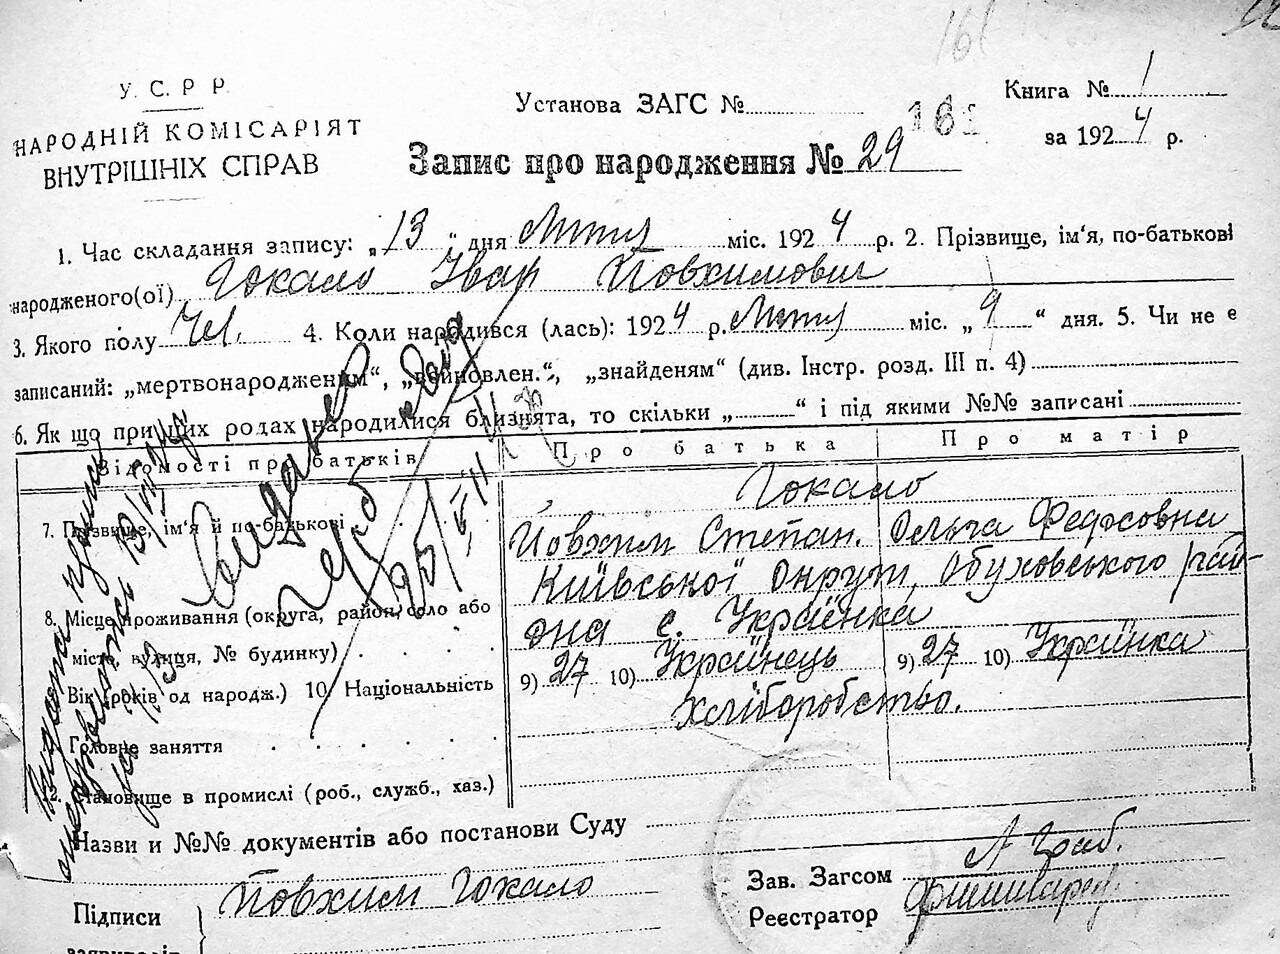 У. С. Р. Р.
НАРОДНІЙ КОМІСАРІЯТ
ВНУТРІШНІХ СПРАВ
Установа ЗАГС №
161
Книга № 1
за 1924 р.
Запис про народження № 29
1. Час складання запису: „13“ дня Лютня міс. 1924 р. 2. Прізвище, ім'я, по-батькові
народженого(ої) Гокало Іван Йовхимович
3. Якого полу Чол. 4. Коли народився (лась): 1924 р. Лютня міс. „9“ дня. 5. Чи не є
записаний: „мертвонародженим“, „війновлен.“, „знайденям“ (див. Інстр. розд. III п. 4)
6. Як що при цих родах народилися близнята, то скільки „ “ і під якими №№ записані
Відомості про батьків
Про батька
Про матір
Гокало
7. Прізвище, ім'я й по-батькові
Йовхим Степан. Ольга Федосовна
Київської Округи, Обуховського рай-
8. Місце проживання (округа, район, село або
она с. Українка
місто, вулиця, № будинку)
9) 27 10) Українець 9) 27 10) Українка
Вік (років од народж.) 10. Національність
Хліборобство.
Головне заняття
Становище в промислі (роб., служб., хаз.)
Назви и №№ документів або постанови Суду
Зав. Загсом
Підписи Йовхим Гокало
Реєстратор
заявителів